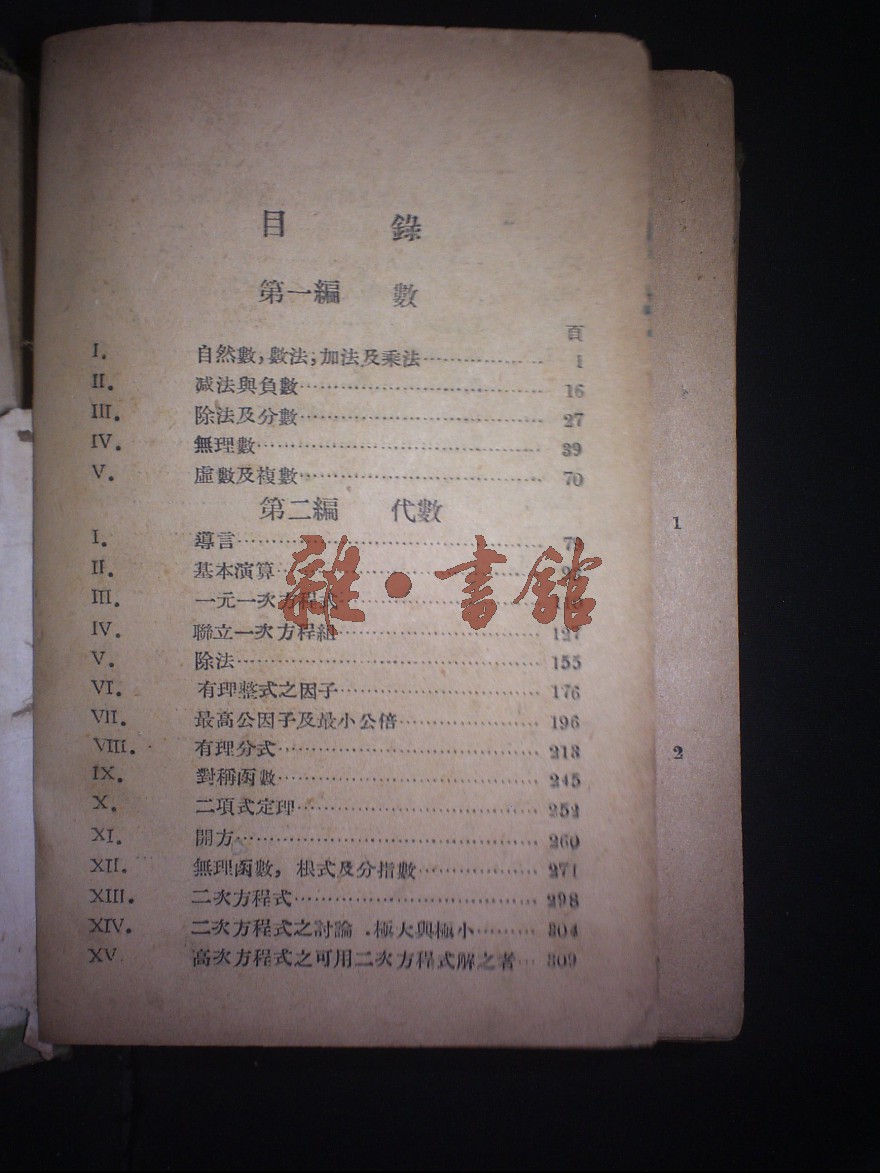 目 錄
第一編 數
頁
I. 自然數,數法;加法及乘法 1
II. 减法與負數 16
III. 除法及分數 27
IV. 無理數 39
V. 虛數及複數 70
第二編 代數
I. 導言 79
II. 基本演算
III. 一元一次方程式
雜·書館
IV. 聯立一次方程組 127
V. 除法 155
VI. 有理整式之因子 176
VII. 最高公因子及最小公倍 196
VIII. 有理分式 213
IX. 對稱函數 245
X. 二項式定理 252
XI. 開方 260
XII. 無理函數, 根式及分指數 271
XIII. 二次方程式 298
XIV. 二次方程式之討論.極大與極小 304
XV 高次方程式之可用二次方程式解之者 309
1
2